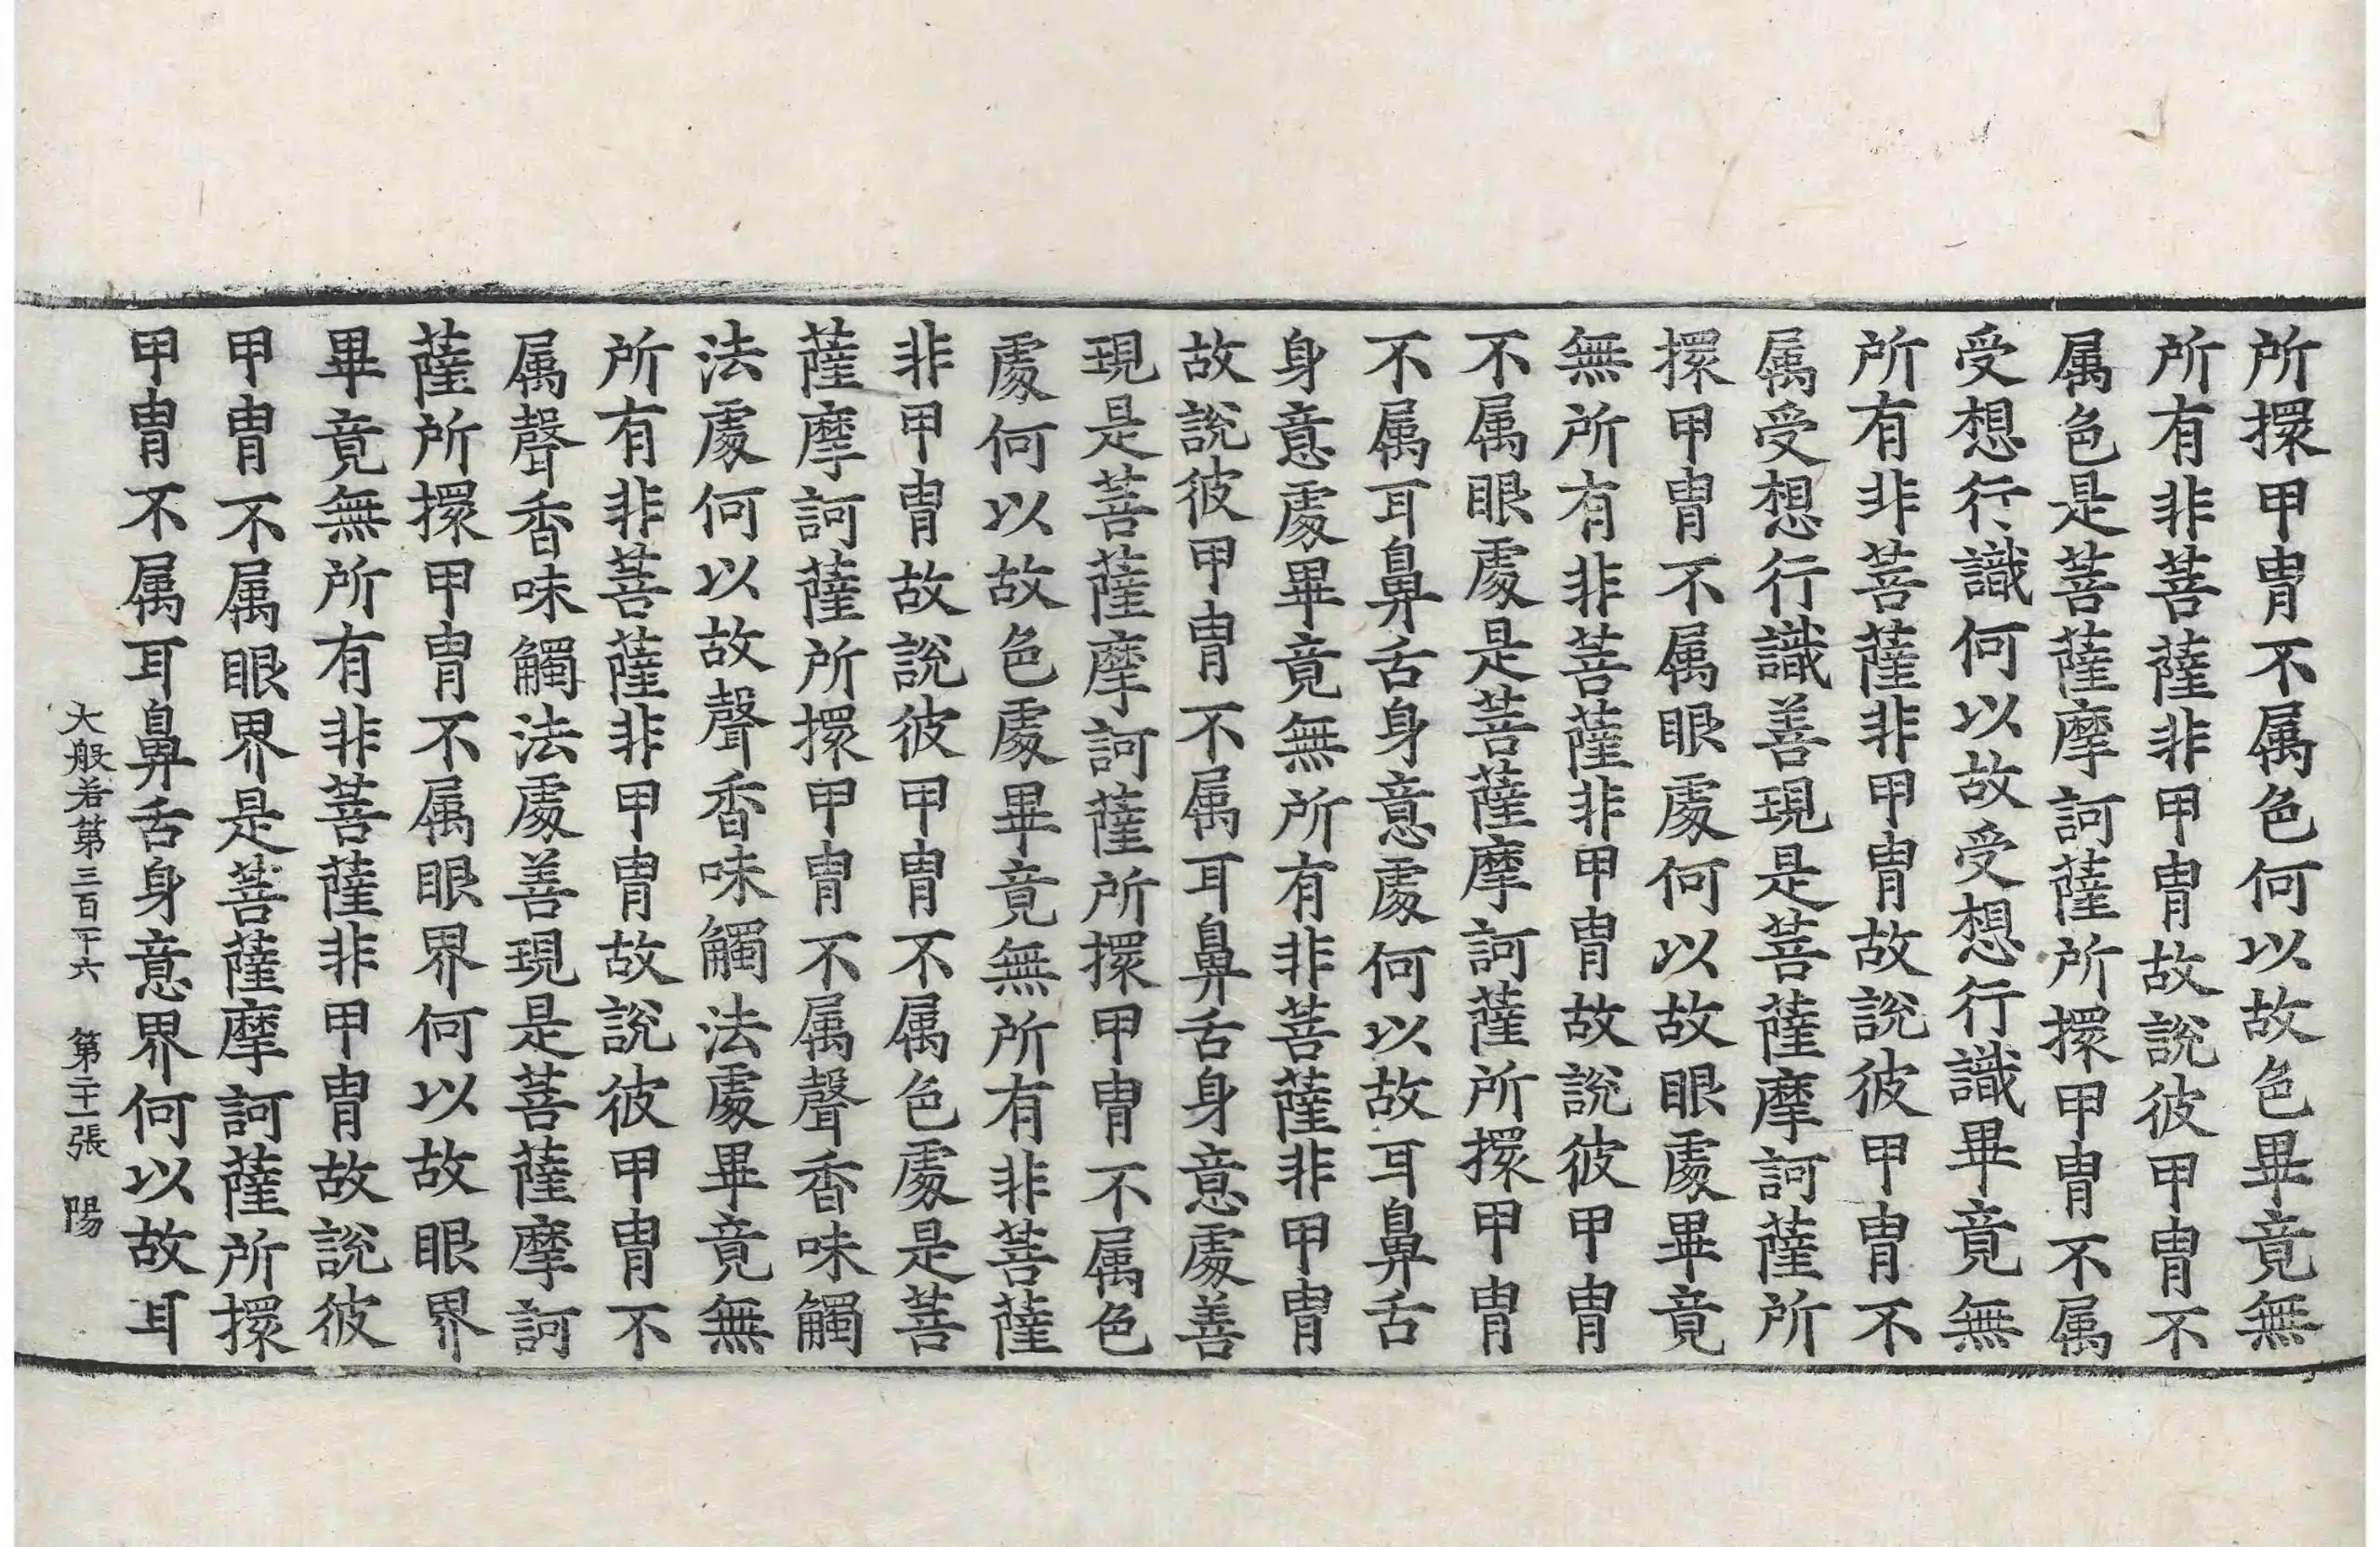 所擐甲冑不属色何以故色畢竟無
所有非菩薩非甲冑故說彼甲冑不
属色是菩薩摩訶薩所擐甲冑不属
受想行識何以故受想行識畢竟無
所有非菩薩非甲冑故說彼甲冑不
属受想行識善現是菩薩摩訶薩所
擐甲冑不属眼處何以故眼處畢竟
無所有非菩薩非甲冑故說彼甲冑
不属眼處是菩薩摩訶薩所擐甲冑
不属耳鼻舌身意處何以故耳鼻舌
身意處畢竟無所有非菩薩非甲冑
故說彼甲冑不属耳鼻舌身意處善
現是菩薩摩訶薩所擐甲冑不属色
處何以故色處畢竟無所有非菩薩
非甲冑故說彼甲冑不属色處是菩
薩摩訶薩所擐甲冑不属聲香味觸
法處何以故聲香味觸法處畢竟無
所有非菩薩非甲冑故說彼甲冑不
属聲香味觸法處善現是菩薩摩訶
薩所擐甲冑不属眼界何以故眼界
畢竟無所有非菩薩非甲冑故說彼
甲冑不属眼界是菩薩摩訶薩所擐
甲冑不属耳鼻舌身意界何以故耳
大般若第三百二十六 第二十二張 陽